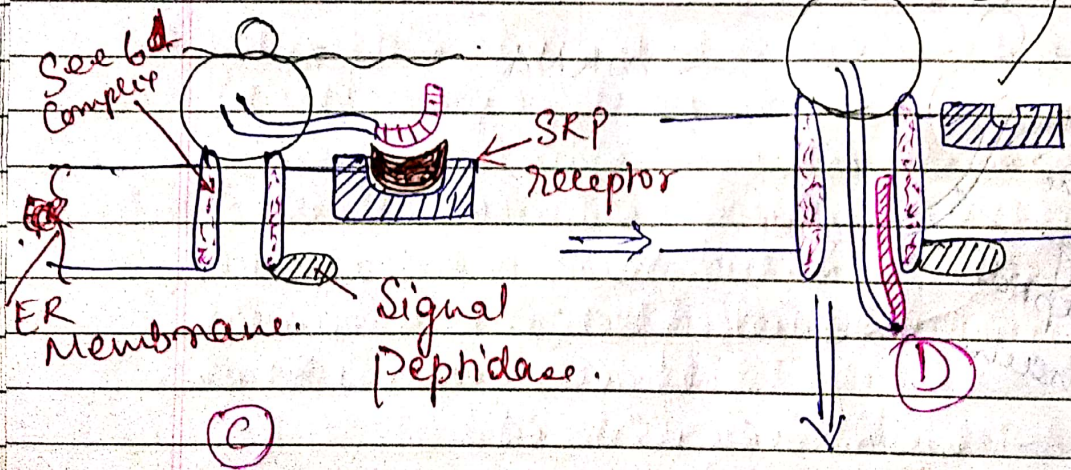 Sec 61
Complex
SRP
receptor
ER
Membrane.
Signal
peptidase.
C
D